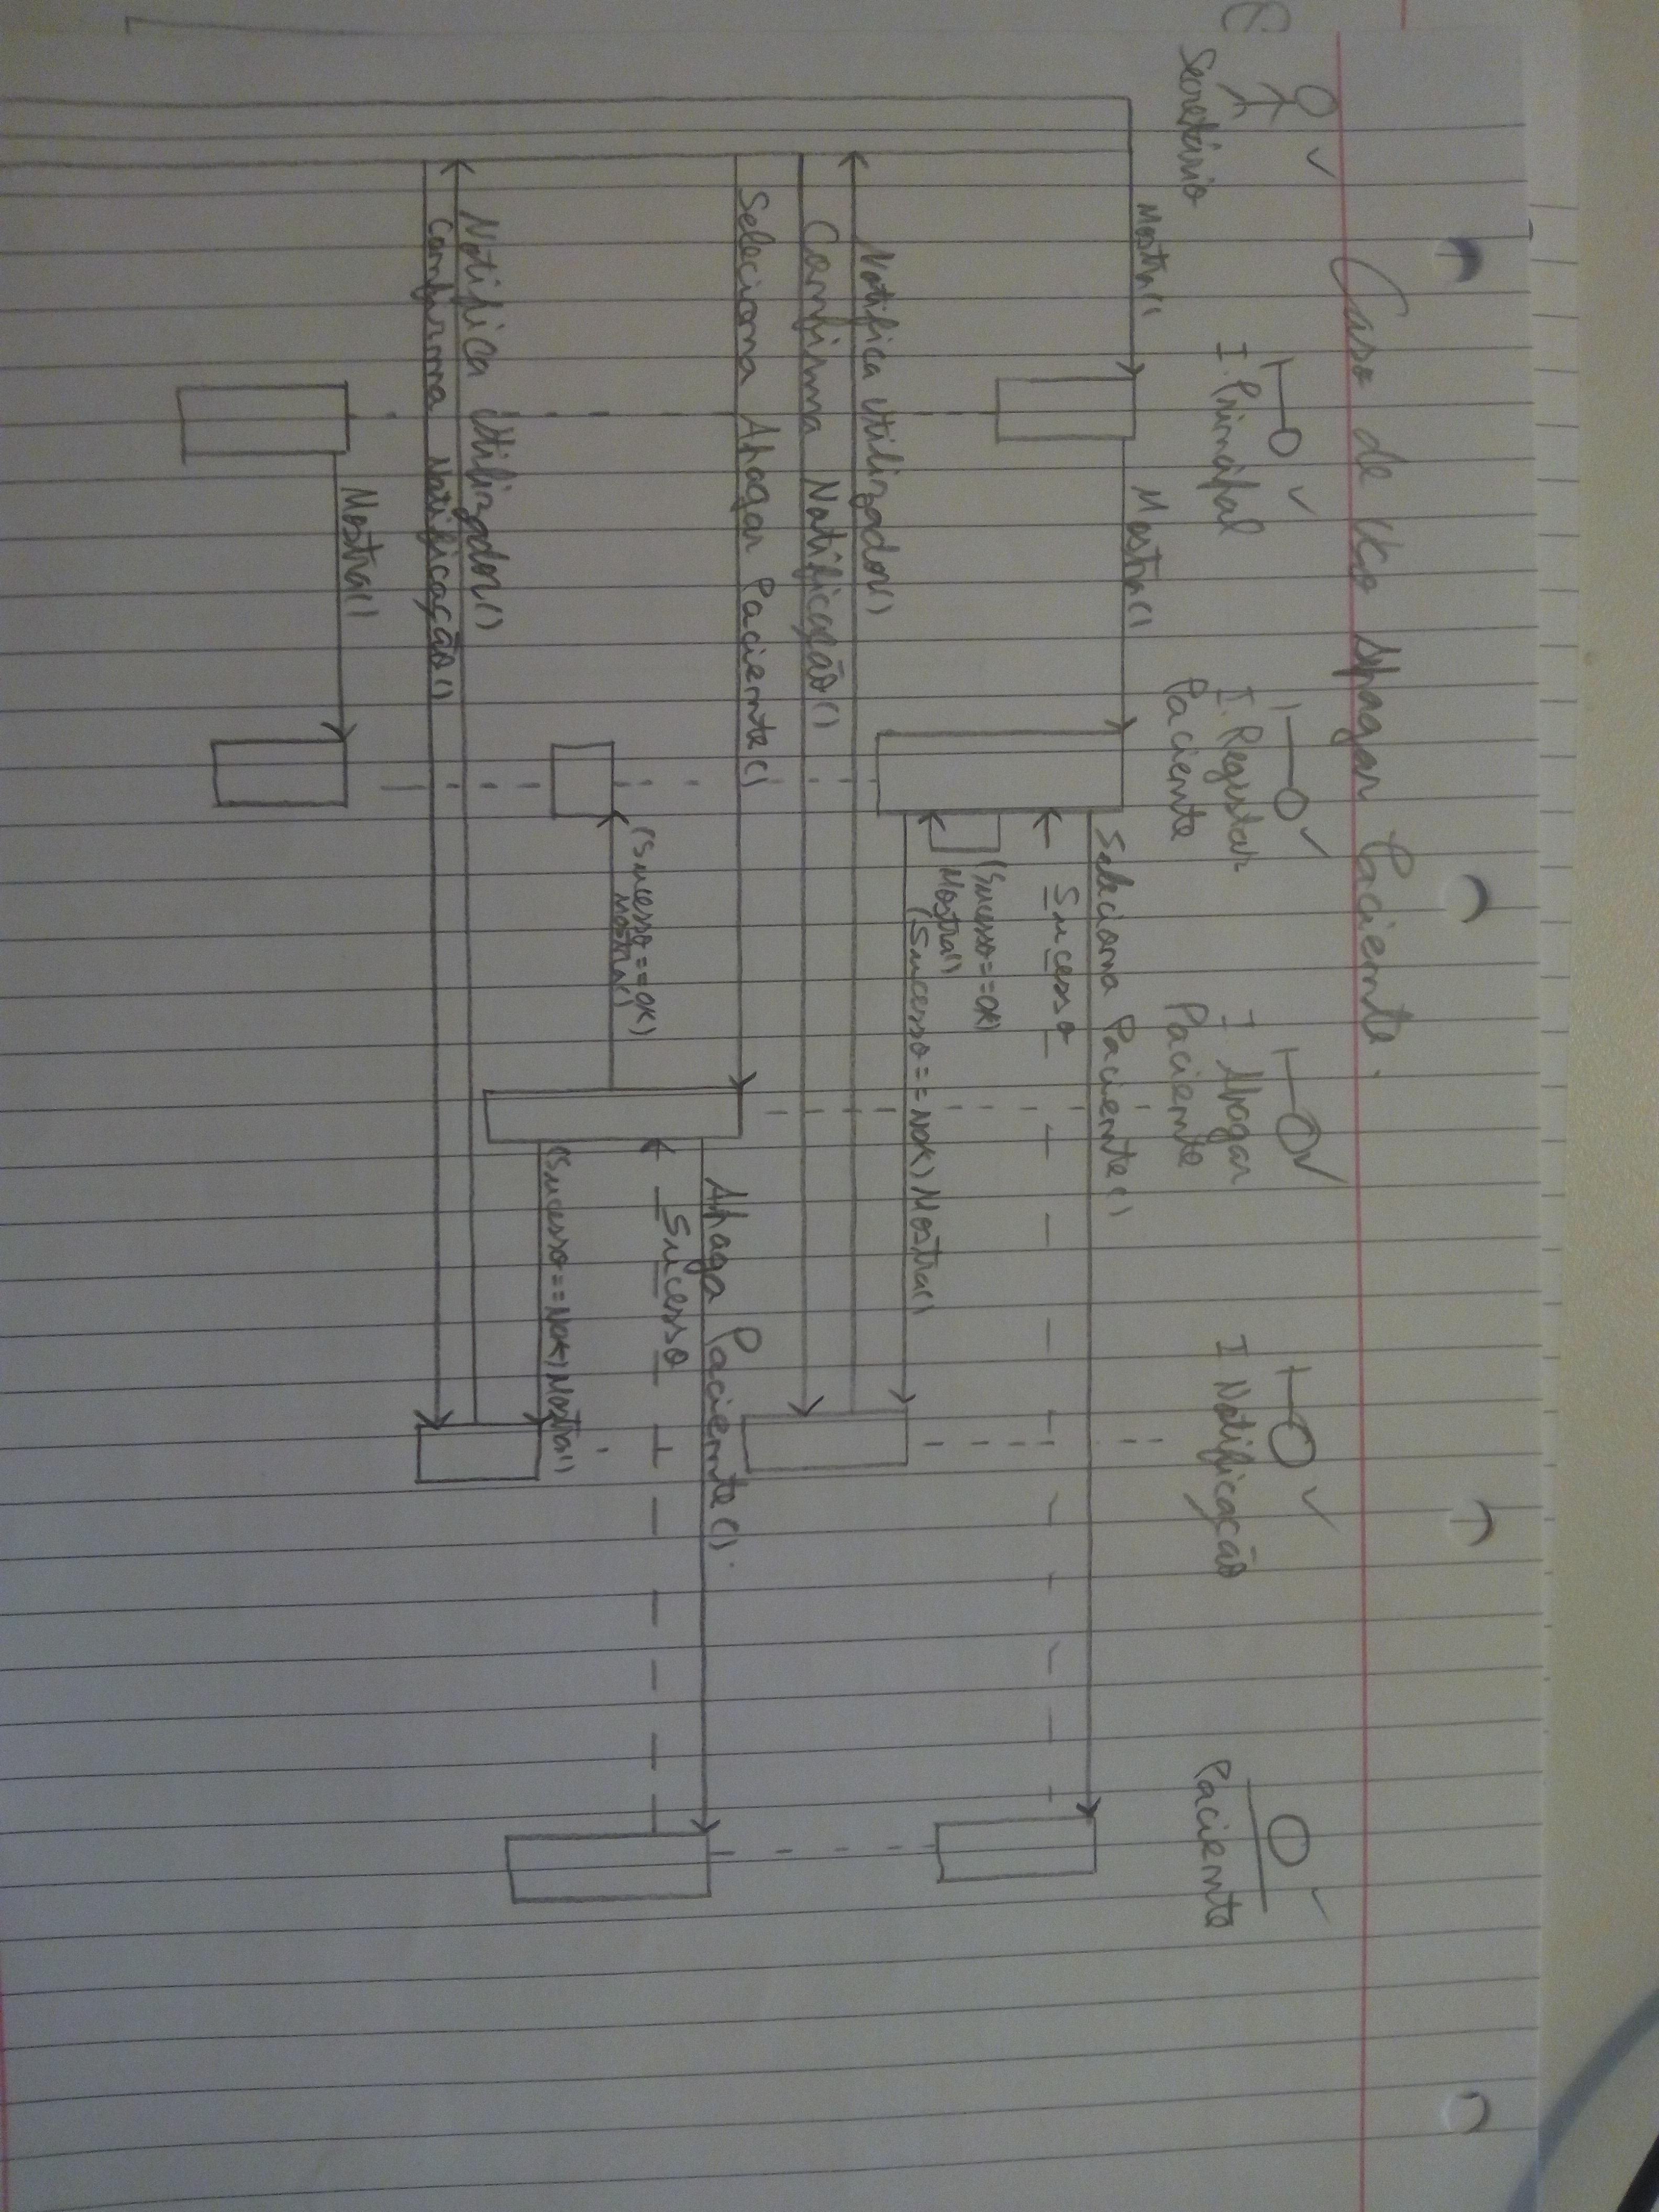 Caso de Uso Apagar Paciente.
Secretário
I. Principal
I. Registar
Paciente
I. Apagar
Paciente
I Notificação
Paciente
Mostra()
Mostra()
Seleciona Paciente()
Sucesso
(Sucesso==OK)
Mostra()
(Sucesso==NOK) Mostra()
Notifica Utilizador()
Confirma Notificação()
Seleciona Apagar Paciente()
Apaga Paciente()
Sucesso
(Sucesso==OK)
Mostra()
(Sucesso==NOK) Mostra()
Notifica Utilizador()
Confirma Notificação()
Mostra()